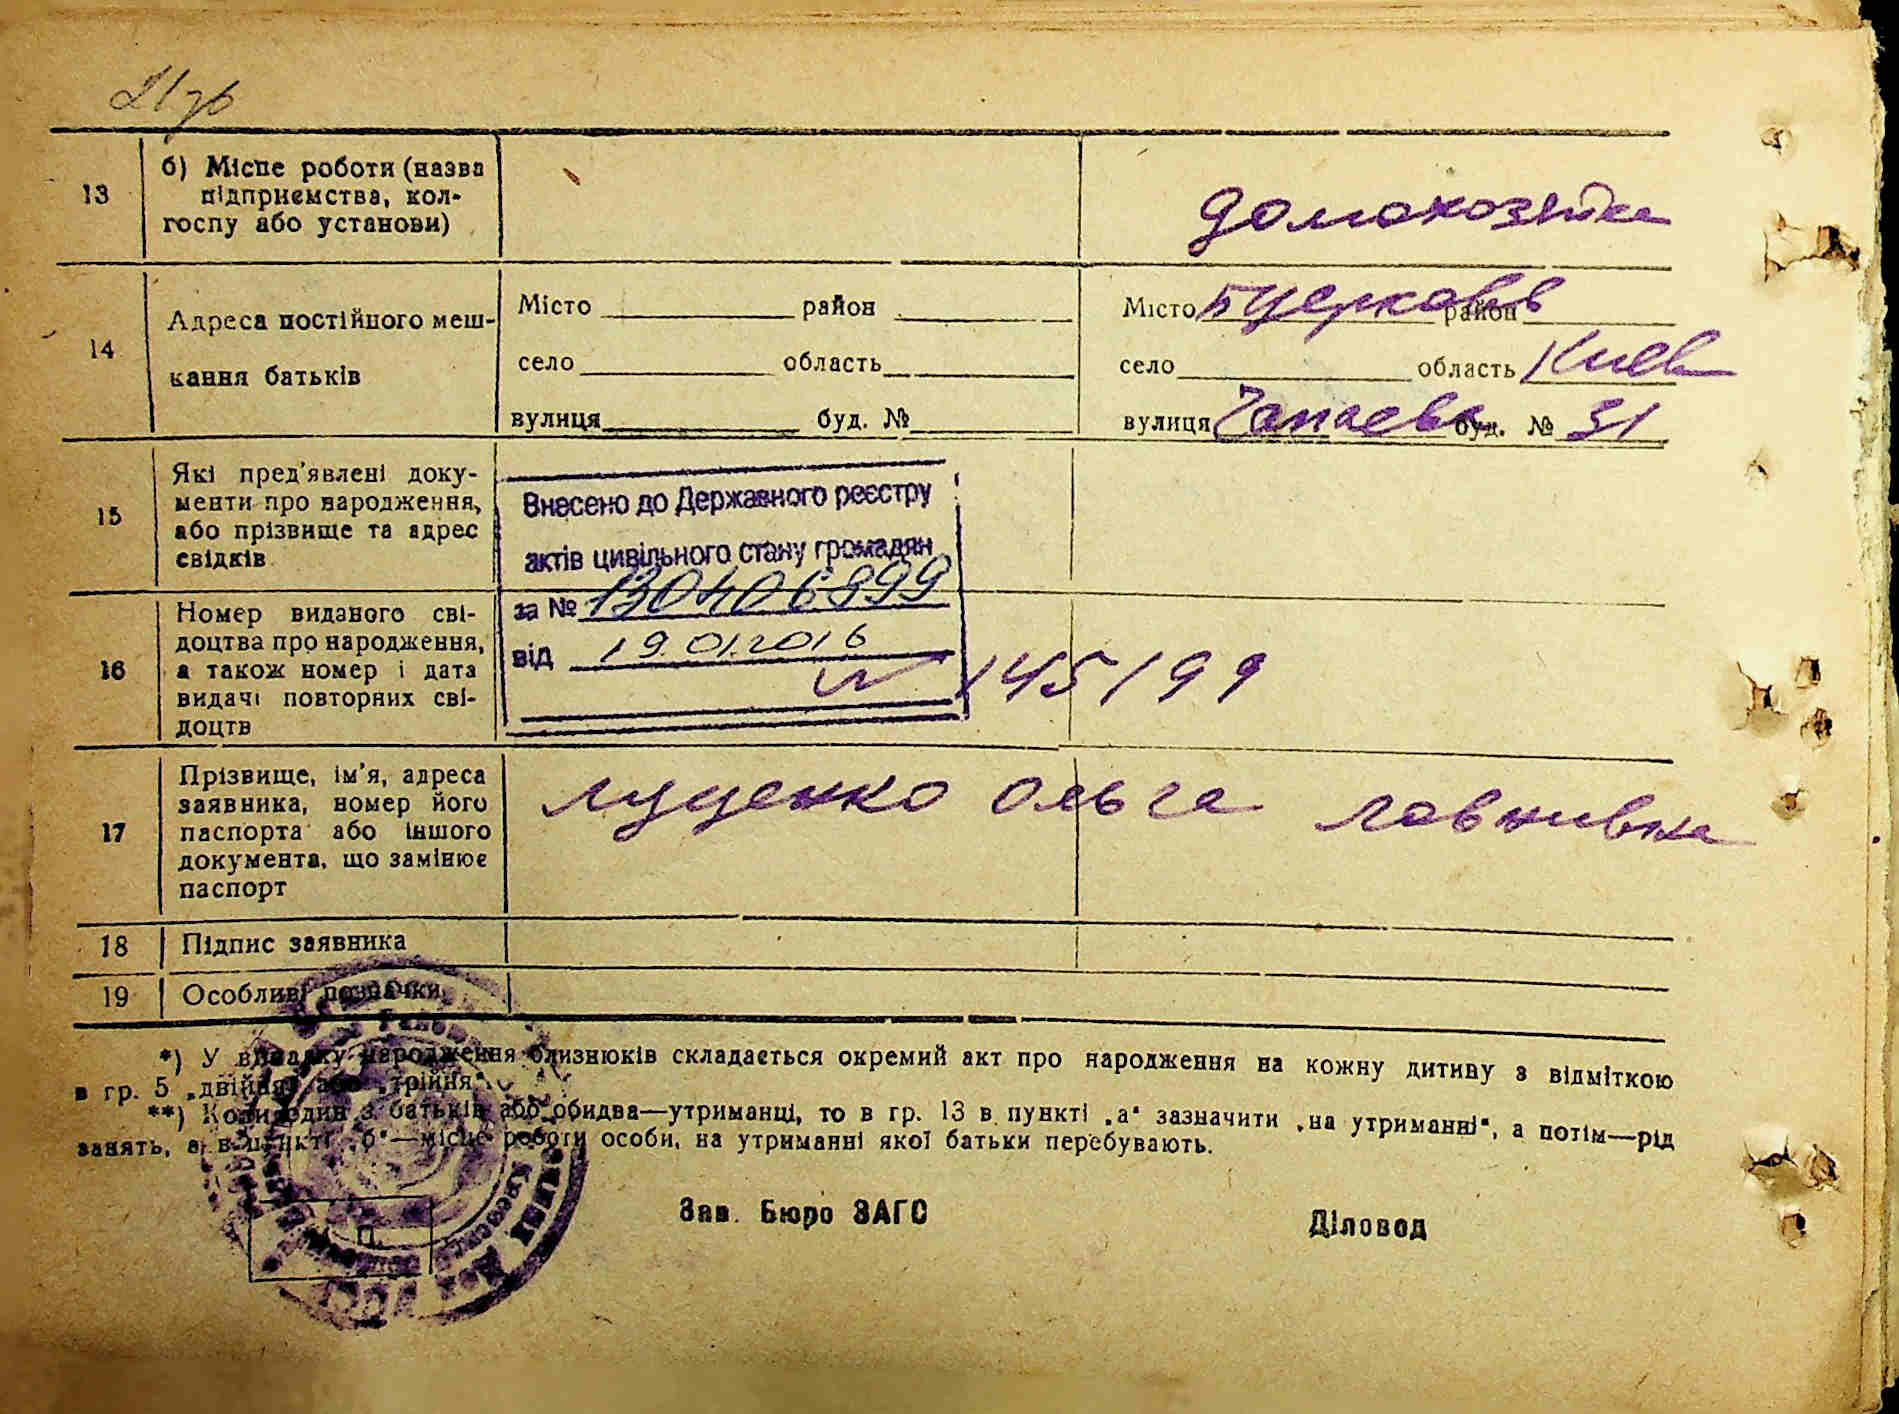 13
б) Місце роботи (назва
підприємства, кол-
госпу або установи)
домохозяйка
14
Адреса постійного меш-
кання батьків
Місто район
село область
вулиця буд. №
Місто Бцерковь район
село область Киев
вулиця Чапаева буд. № 31
15
Які пред'явлені доку-
менти про народження,
або прізвище та адрес
свідків
Внесено до Державного реєстру
актів цивільного стану громадян
за № 130406899
від 19.01.2016
16
Номер виданого сві-
доцтва про народження,
а також номер і дата
видачі повторних сві-
доцтв
145199
17
Прізвище, ім'я, адреса
заявника, номер його
паспорта або іншого
документа, що замінює
паспорт
Луценко Ольга
18 Підпис заявника
19 Особливі позначки
*) У випадку народження близнюків складається окремий акт про народження на кожну дитину з відміткою
в гр. 5 „двійня" або „трійня".
**) Коли один з батьків або обидва—утриманці, то в гр. 13 в пункті „а" зазначити „на утриманні", а потім—рід
занять, а в пункті „б"—місце роботи особи, на утриманні якої батьки перебувають.
Зав. Бюро ЗАГС
Діловод